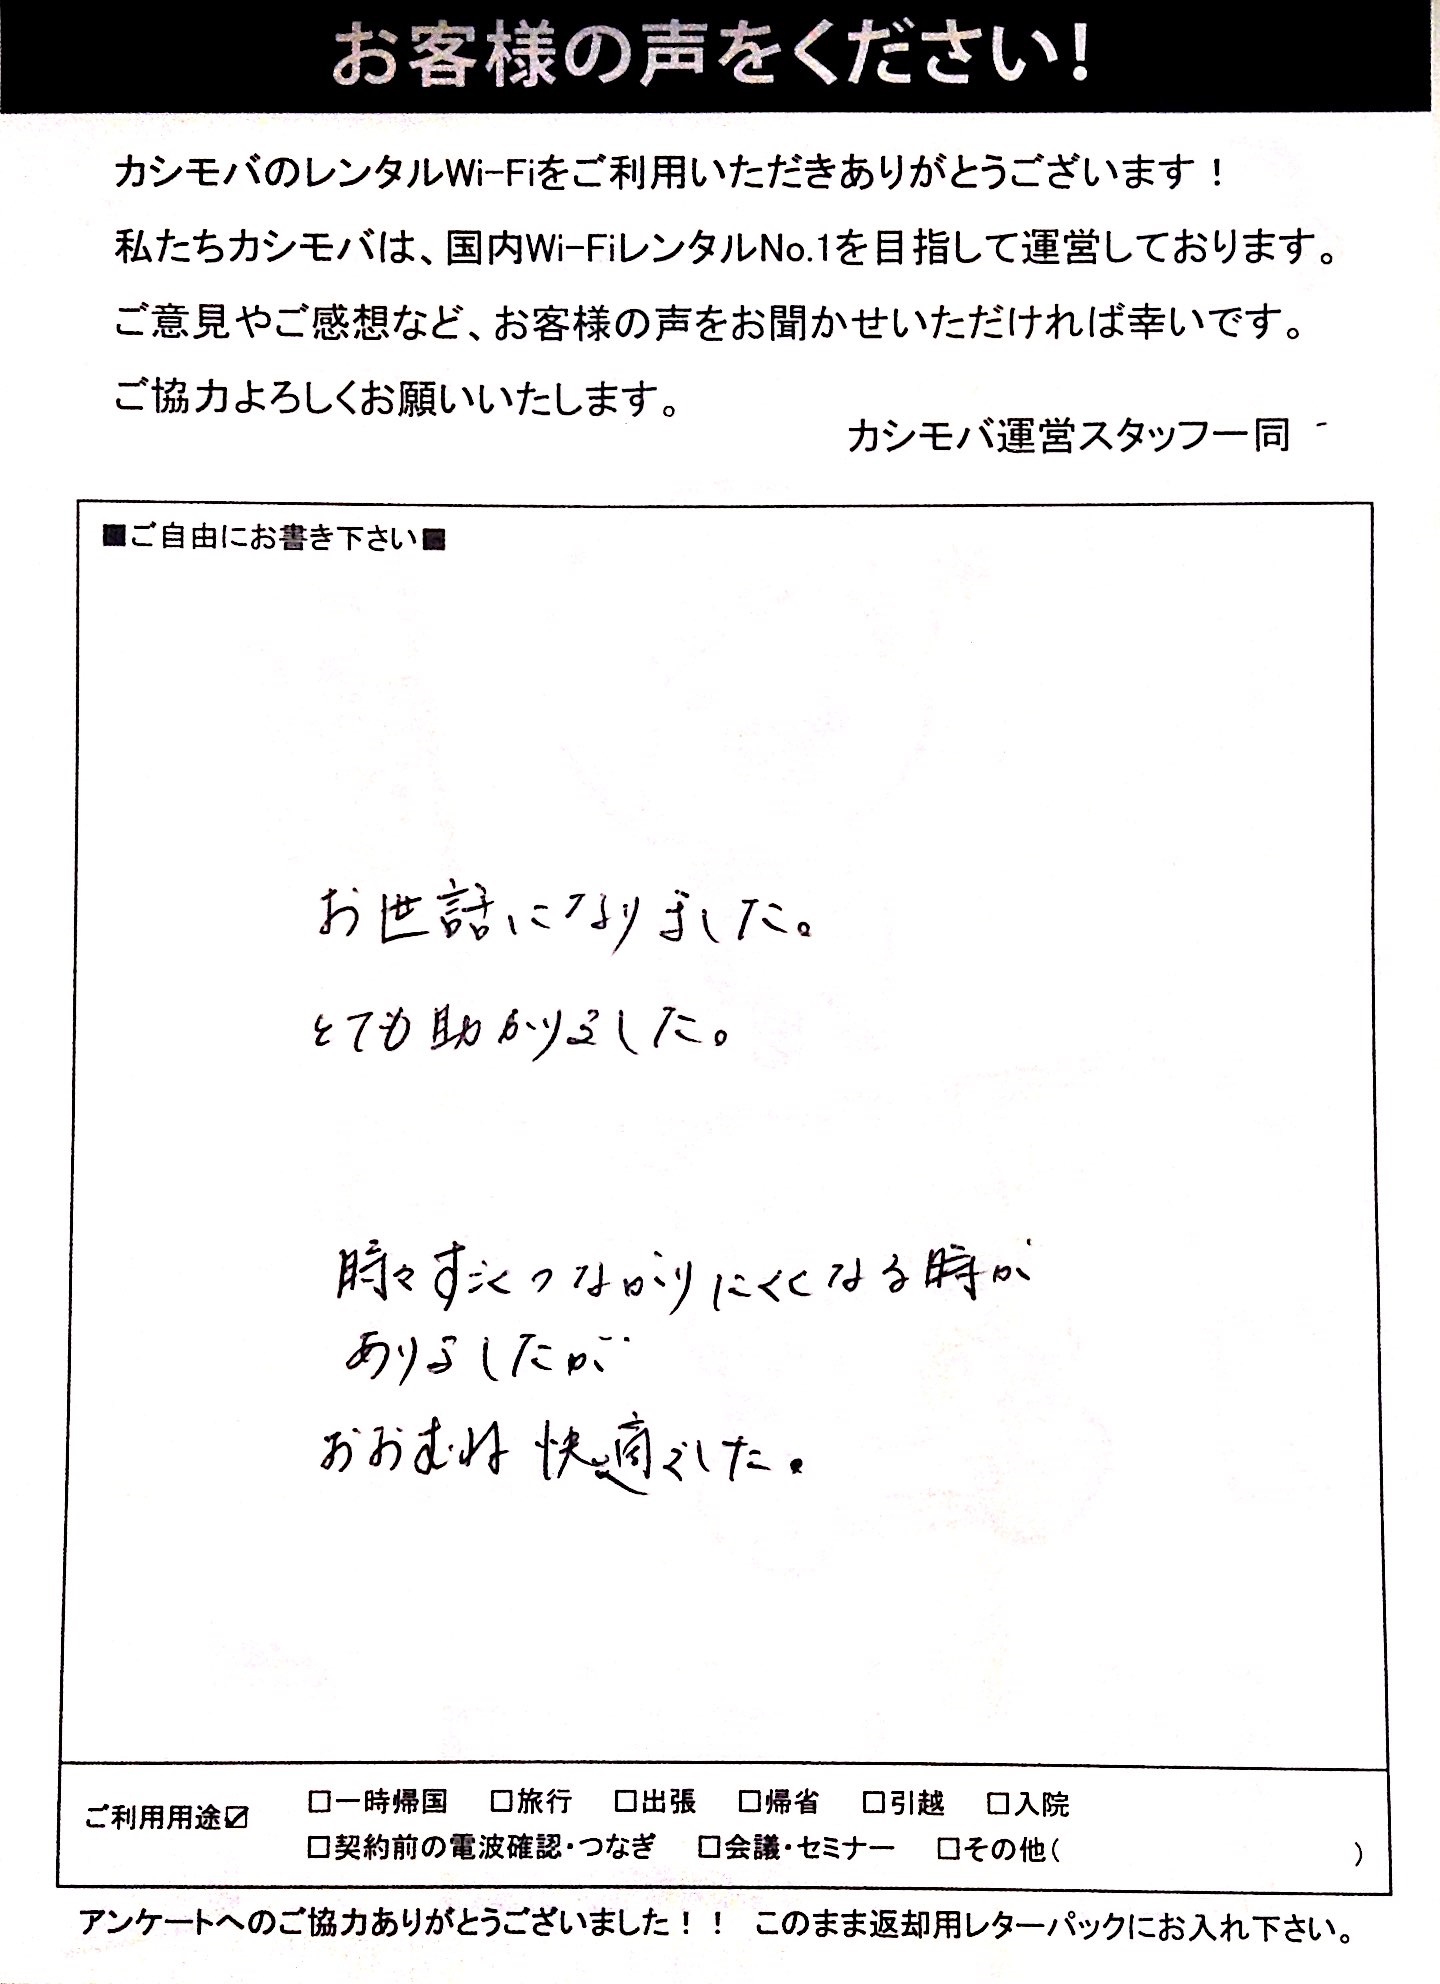 お客様の声をください!
カシモバのレンタルWi-Fiをご利用いただきありがとうございます！
私たちカシモバは、国内Wi-FiレンタルNo.1を目指して運営しております。
ご意見やご感想など、お客様の声をお聞かせいただければ幸いです。
ご協力よろしくお願いいたします。
カシモバ運営スタッフ一同
■ご自由にお書き下さい■
お世話になりました。
とても助かりました。
時々すごくつながりにくくなる時が
ありましたが
おおむね快適でした。
ご利用用途☑ □一時帰国 □旅行 □出張 □帰省 □引越 □入院
□契約前の電波確認・つなぎ □会議・セミナー □その他( )
アンケートへのご協力ありがとうございました！！ このまま返却用レターパックにお入れ下さい。